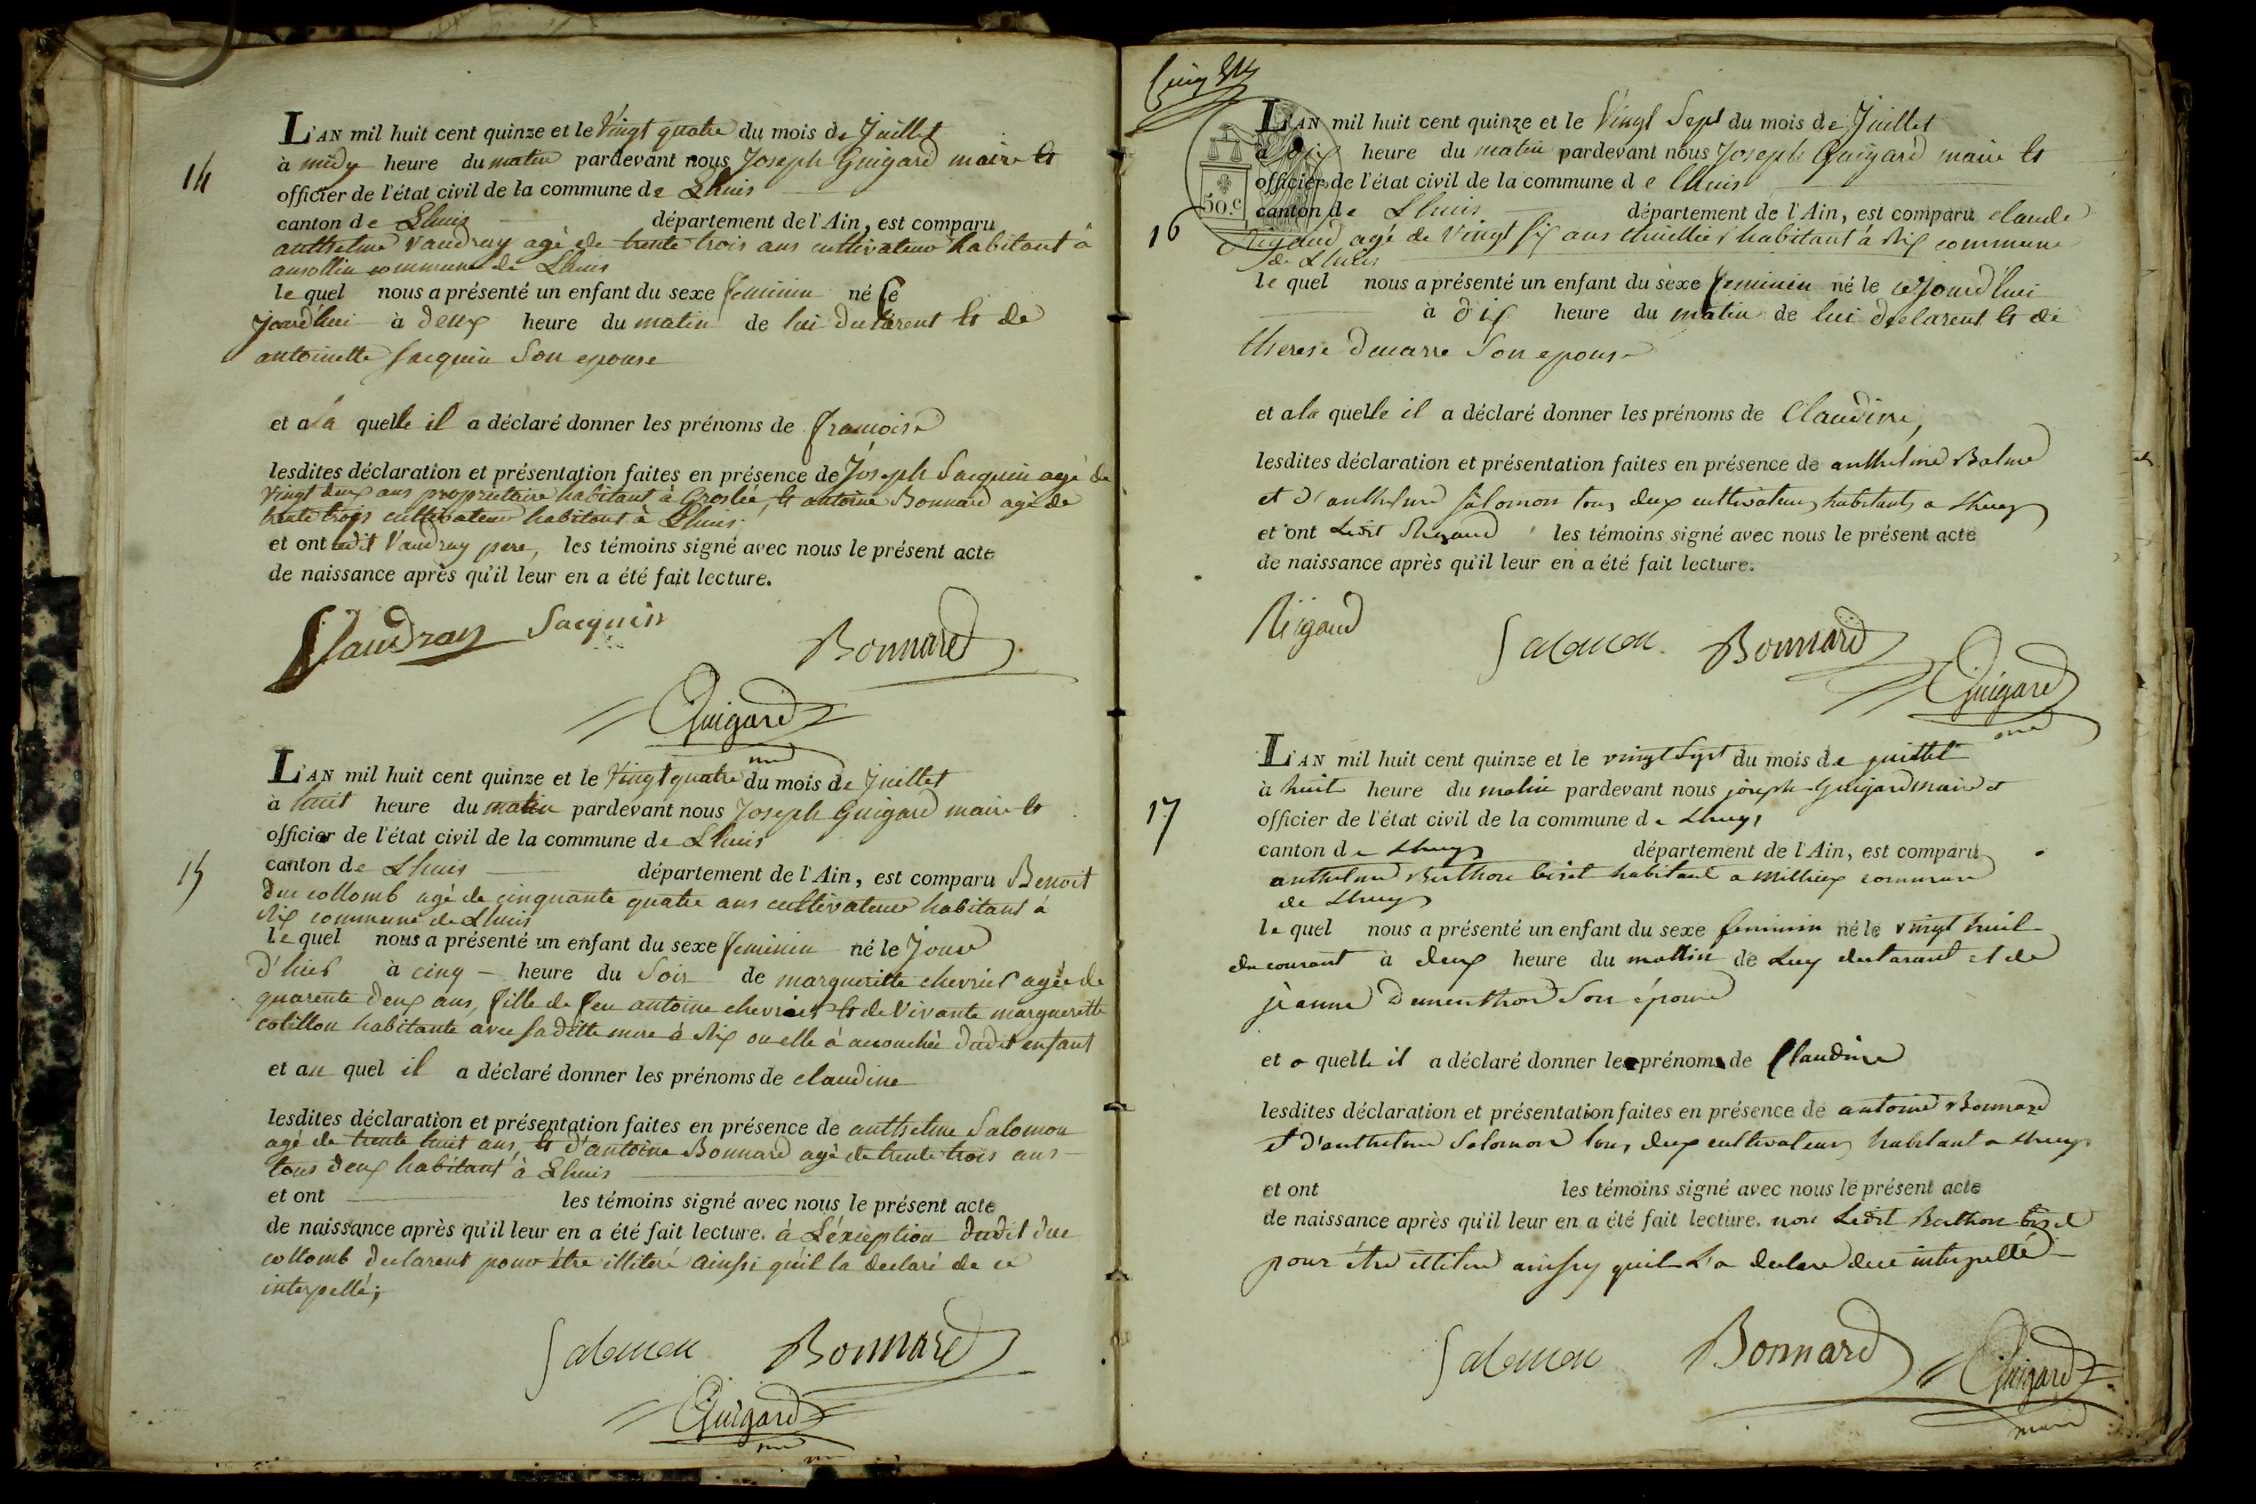 14
L'AN mil huit cent quinze et le Vingt quatre du mois de Juillet
à midy heure du matin pardevant nous Joseph Guigard maire et
officier de l'état civil de la commune de Lhuis
canton de Lhuis département de l'Ain, est comparu
anthelme Vaudray agé de trente trois ans cultivateur habitant à
ansollin commune de Lhuis
le quel nous a présenté un enfant du sexe feminin né ce
jourd'hui à deux heure du matin de lui declarent et de
antoinette Sacquin Son epouse
et a la quelle il a déclaré donner les prénoms de francoise
lesdites déclaration et présentation faites en présence de Joseph Sacquin agé de
vingt deux ans proprietaire habitant à Groslée, et antoine Bonnard agé de
trente trois cultivateur habitant à Lhuis.
et ont ledit Vaudray pere, les témoins signé avec nous le présent acte
de naissance après qu'il leur en a été fait lecture.
Vaudray Sacquin Bonnard
Guigard
L'AN mil huit cent quinze et le Vingt quatre du mois de Juillet
à huit heure du matin pardevant nous Joseph Guigard maire et
officier de l'état civil de la commune de Lhuis
15
canton de Lhuis département de l'Ain, est comparu Benoit
Duc collomb agé de cinquante quatre ans cultivateur habitant à
Rix commune de Lhuis
le quel nous a présenté un enfant du sexe feminin né le Jour
d'hier à cinq heure du Soir de margueritte chevrier agée de
quarente deux ans, fille de feu antoine chevrier et de Vivante marguerette
cotillon habitante avec sa ditte mere à Rix ou elle à acouchée dudit enfant
et au quel il a déclaré donner les prénoms de claudine
lesdites déclaration et présentation faites en présence de anthelme Salomon
agé de trente huit ans, et d'antoine Bonnard agé de trente trois ans
tous deux habitant à Lhuis
et ont les témoins signé avec nous le présent acte
de naissance après qu'il leur en a été fait lecture. à L'éxception dudit Duc
collomb declarent pour être illiteré ainsi qu'il la declaré de ce
interpellé;
Salomon Bonnard
Guigard
L'AN mil huit cent quinze et le Vingt Sept du mois de Juillet
à dix heure du matin pardevant nous Joseph Guigard maire et
officier de l'état civil de la commune de Lhuis
50.c
16
canton de Lhuis département de l'Ain, est comparu claude
Rigaud agé de Vingt six ans thuillier habitant à Rix commune
de Lhuis
le quel nous a présenté un enfant du sexe feminin né le cejourd'hui
à dix heure du matin de lui declarent et de
therese Son epouse
et a la quelle il a déclaré donner les prénoms de Claudine,
lesdites déclaration et présentation faites en présence de anthelme Balme
et d'anthelme Salomon tous deux cultivateurs habitants a Lhuys
et ont Ledit Rigaud les témoins signé avec nous le présent acte
de naissance après qu'il leur en a été fait lecture.
Rigaud Salomon Bonnard
Guigard
L'AN mil huit cent quinze et le vingt Sept du mois de juillet
à huit heure du matin pardevant nous joseph Guigard maire et
17
officier de l'état civil de la commune de Lhuys
canton de Lhuys département de l'Ain, est comparu
anthelme Berthon bizet habitant a Millieux commune
de Lhuys
le quel nous a présenté un enfant du sexe feminin né le vingt huit
du courant à deux heure du mattin de Luy declarant et de
jeanne Son épouse
et a quelle il a déclaré donner les prénoms de Claudine
lesdites déclaration et présentation faites en présence de antoine Bonnard
et d'anthelme Salomon tous deux cultivateurs habitant a Lhuys
et ont les témoins signé avec nous le présent acte
de naissance après qu'il leur en a été fait lecture. non Ledit Berthon bizet
pour être illitere ainsy quil L'a declare dece interpellé
Salomon Bonnard Guigard
maire